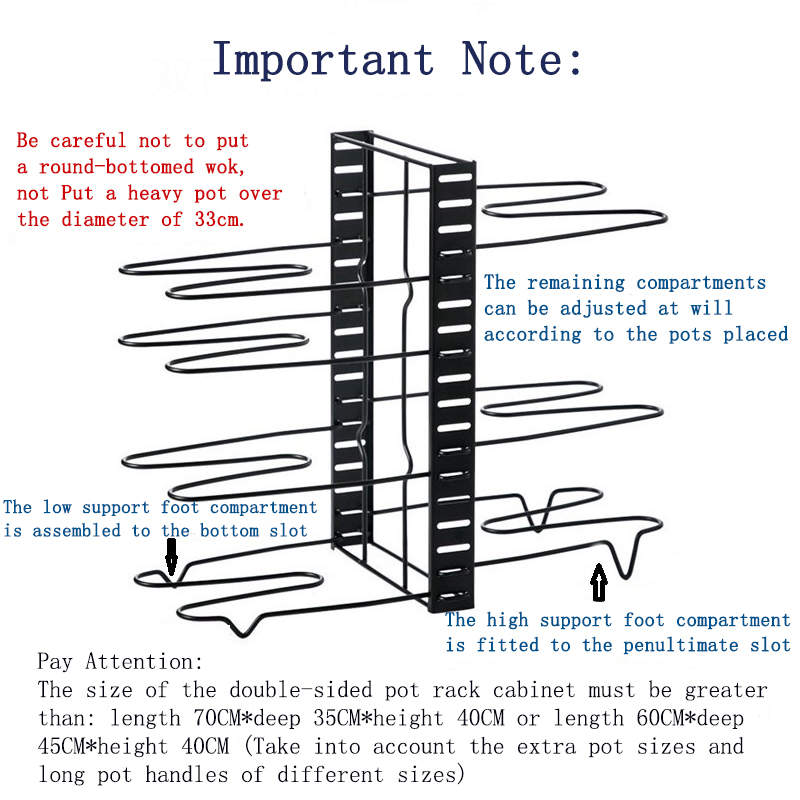 Important Note:
Be careful not to put
a round-bottomed wok,
not Put a heavy pot over
the diameter of 33cm.
The remaining compartments
can be adjusted at will
according to the pots placed
The low support foot compartment
is assembled to the bottom slot
The high support foot compartment
is fitted to the penultimate slot
Pay Attention:
The size of the double-sided pot rack cabinet must be greater
than: length 70CM*deep 35CM*height 40CM or length 60CM*deep
45CM*height 40CM (Take into account the extra pot sizes and
long pot handles of different sizes)